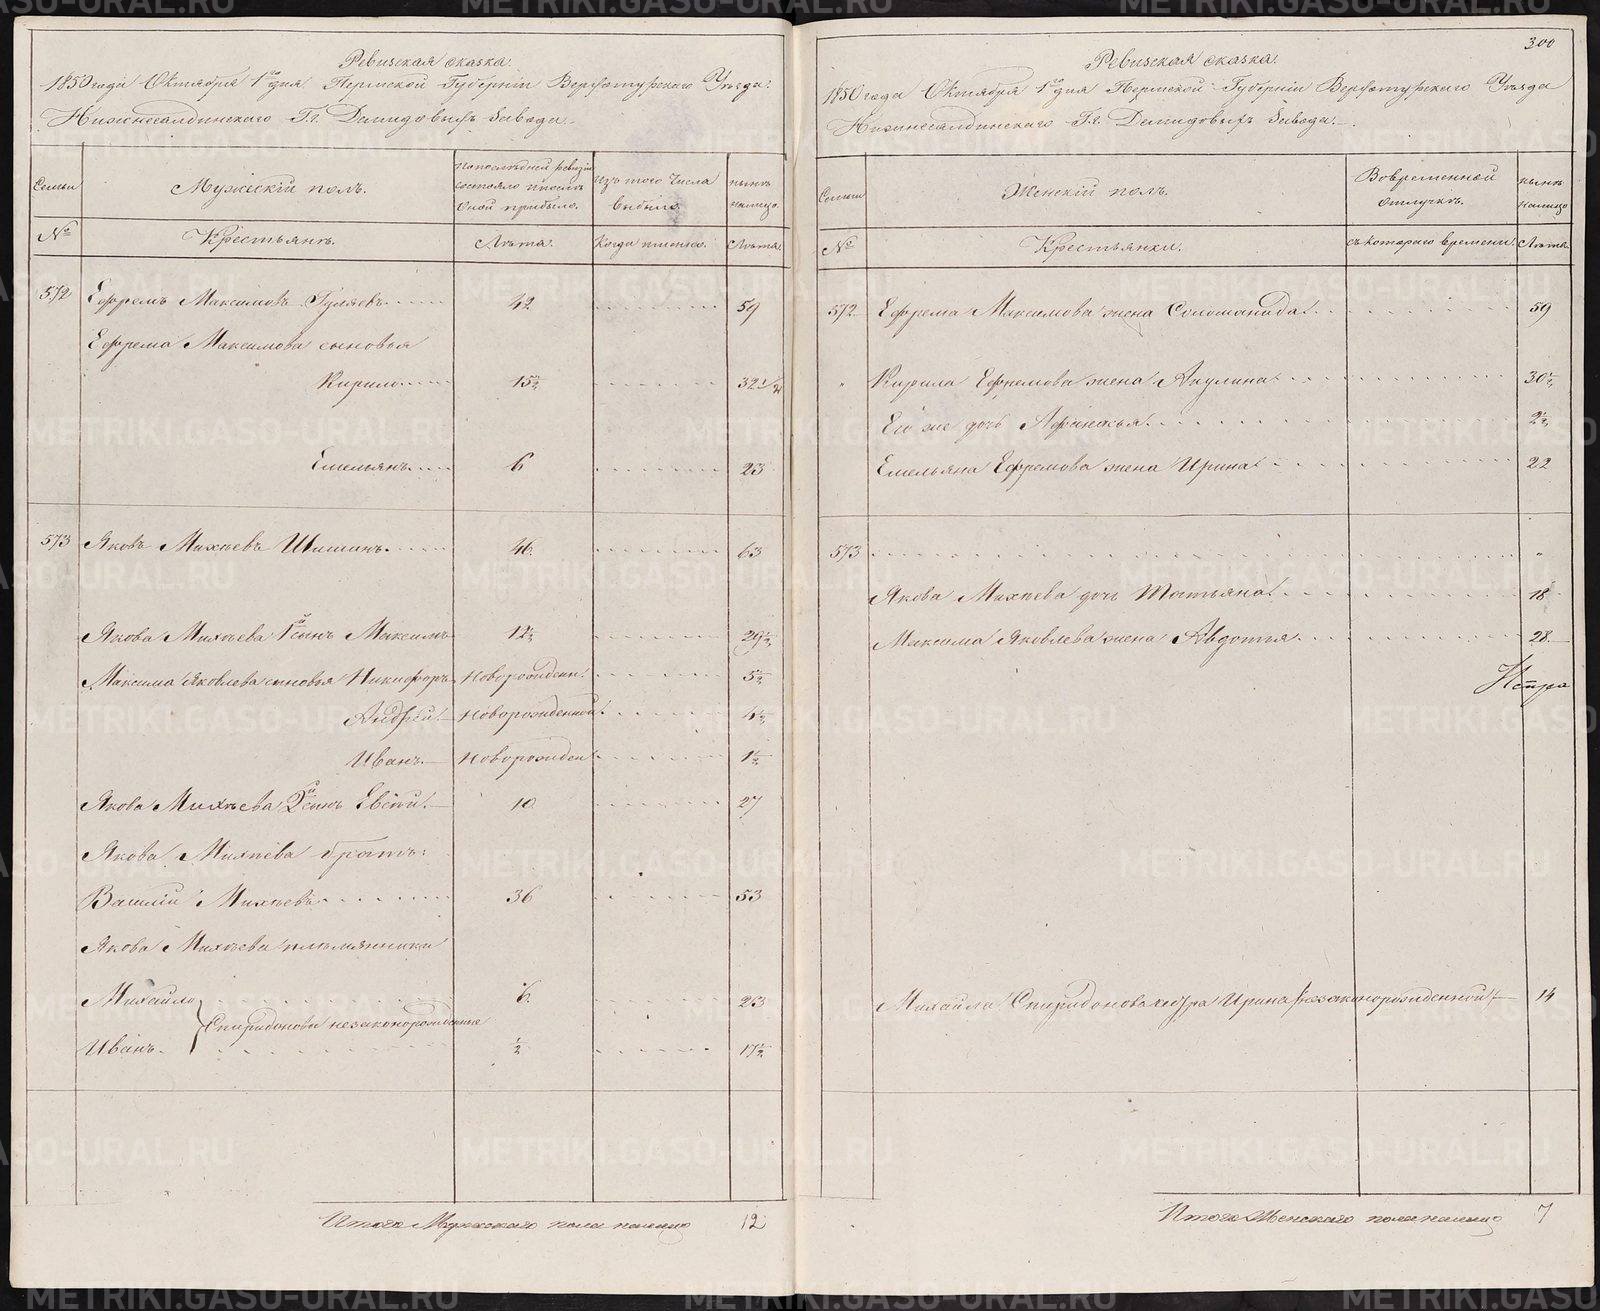 Ревизская сказка.
1850 года Октября 1го дня Пермской Губерніи Верхотурскаго Уѣзда
Нижнесалдинскаго Гг. Демидовыхъ Завода.
Семьи
Мужескій полъ.
По послѣдней ревизіи
состояло и послѣ
оной прибыло.
Изъ того числа
выбыло.
нынѣ
налицо.
№
Крестьянъ.
Лѣта.
Когда именно.
Лѣта.
572 Ефремъ Максимовъ Гуляевъ 42 59
Ефрема Максимова сыновья
Кирило 15½ 32½
Емельянъ 6 23
573 Яковъ Михѣевъ Шишинъ 46 63
Якова Михѣева 1й сынъ Максимъ 12½ 29½
Максима Яковлева сыновья Никифоръ Новорожден. 5½
Андрей Новорожденной 4½
Иванъ Новорожден 1½
Якова Михѣева 2й сынъ Евсѣй 10 27
Якова Михѣева братъ:
Василій Михѣевъ 36 53
Якова Михѣева племянники
Михайло 6 23
Спиридоновы незаконорожденные
Иванъ ½ 17½
Итого Мужескаго пола налицо 12
300
Ревизская сказка.
1850 года Октября 1го дня Пермской Губерніи Верхотурскаго Уѣзда
Нижнесалдинскаго Гг. Демидовыхъ Завода.
Семьи
Женскій полъ.
Во временной
отлучкѣ.
нынѣ
налицо
№
Крестьянки.
съ котораго времени.
Лѣта
572 Ефрема Максимова жена Соломанида 59
" Кирила Ефремова жена Акулина 30½
Его же дочь Афанасья 2½
Емельяна Ефремова жена Ирина 22
573 "
Якова Михѣева дочь Татьяна 18
Максима Яковлева жена Авдотья 28
Михайла Спиридонова сестра Ирина незаконорожденной 14
Итого Женскаго пола налицо 7
METRIKI.GASO-URAL.RU